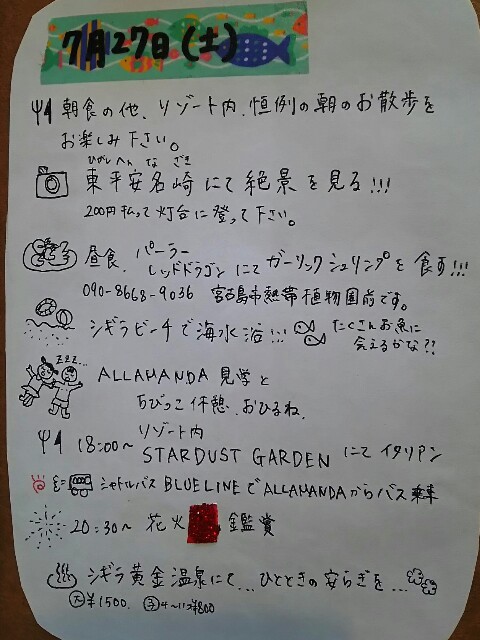 7月27日(土)
朝食の他、リゾート内、恒例の朝のお散歩を
お楽しみ下さい。
ひがしへんなざき
東平安名崎にて絶景を見る!!!
200円払って灯台に登って下さい。
昼食、パーラー
レッドドラゴンにてガーリックシュリンプを食す!!!
090-8668-9036 宮古島市熱帯植物園前です。
シギラビーチで海水浴!!! たくさんお魚に
会えるかな??
ZZZ...
ALLAMANDA 見学と
ちびっこ休憩、おひるね、
18:00~ リゾート内
STARDUST GARDEN にてイタリアン
シャトルバス BLUE LINEでALLAMANDAからバス乗車
20:30~ 花火 鑑賞
シギラ黄金温泉にて...ひとときの安らぎを...
大¥1500. 子4~11才¥800